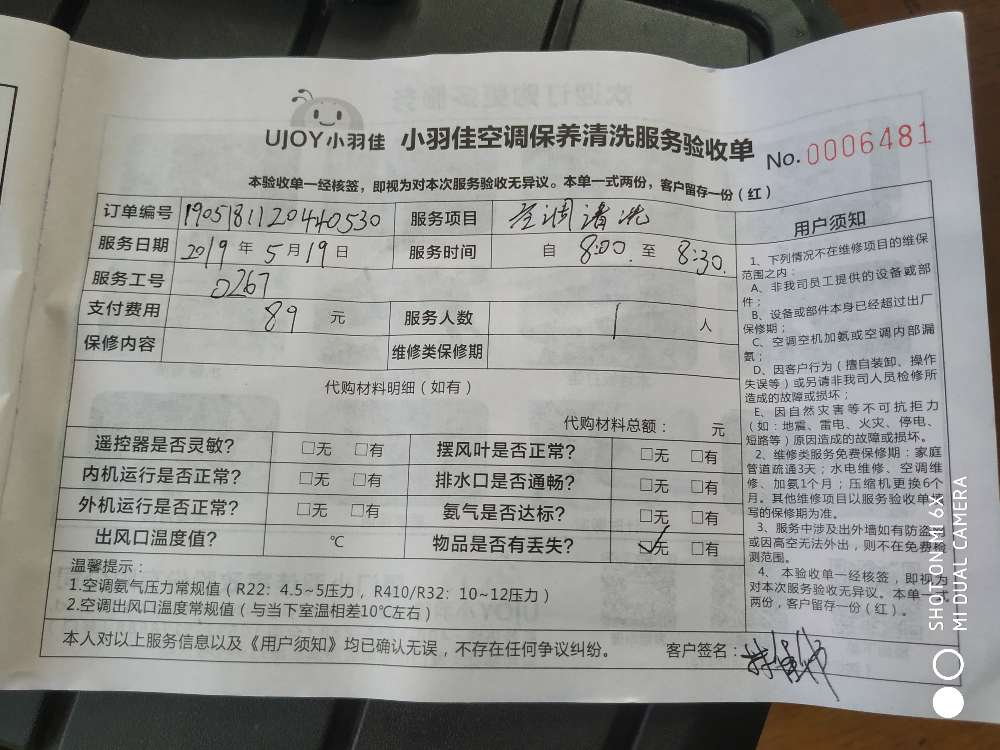 UJOY小羽佳 小羽佳空调保养清洗服务验收单 No.0006481
本验收单一经核签，即视为对本次服务验收无异议。本单一式两份，客户留存一份（红）
订单编号 1905181120440530 服务项目 空调清洗
服务日期 2019年5月19日 服务时间 自 8:00 至 8:30
服务工号 0267
支付费用 89 元 服务人数 1 人
保修内容 维修类保修期
代购材料明细（如有）
代购材料总额： 元
遥控器是否灵敏? □无 □有 摆风叶是否正常? □无 □有
内机运行是否正常? □无 □有 排水口是否通畅? □无 □有
外机运行是否正常? □无 □有 氨气是否达标? □无 □有
出风口温度值? ℃ 物品是否有丢失? ☑无 □有
温馨提示：
1.空调氨气压力常规值（R22：4.5~5压力，R410/R32：10~12压力）
2.空调出风口温度常规值（与当下室温相差10℃左右）
本人对以上服务信息以及《用户须知》均已确认无误，不存在任何争议纠纷。 客户签名：
用户须知
1、下列情况不在维修项目的维保
范围之内：
A、非我司员工提供的设备或部
件；
B、设备或部件本身已经超过出厂
保修期；
C、空调空机加氨或空调内部漏
氨；
D、因客户行为（擅自装卸、操作
失误等）或另请非我司人员检修所
造成的故障或损坏；
E、因自然灾害等不可抗拒力
（如：地震、雷电、火灾、停电、
短路等）原因造成的故障或损坏。
2、维修类服务免费保修期：家庭
管道疏通3天；水电维修、空调维
修、加氨1个月；压缩机更换6个
月。其他维修项目以服务验收单
写的保修期为准。
3、服务中涉及出外墙如有防盗
或因高空无法外出，则不在免费检
测范围。
4、本验收单一经核签，即视为
对本次服务验收无异议。本单一式
两份，客户留存一份（红）。
SHOT ON MI 6X
MI DUAL CAMERA